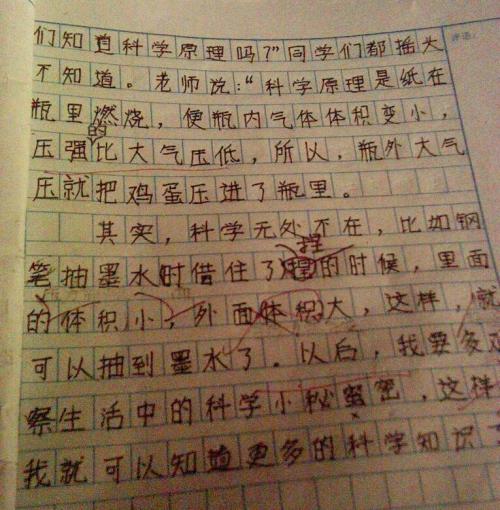 们知道科学原理吗？”同学们都摇头
不知道。老师说：“科学原理是纸在
瓶里燃烧，使瓶内气体体积变小，
压强的比大气压低，所以，瓶外大气
压就把鸡蛋压进了瓶里。
其实，科学无处不在，比如钢
笔抽墨水时借住了捏的时候，里面
的体积小，外面体积大，这样，就
可以抽到墨水了。以后，我要多
察生活中的科学小秘密，这样
我就可以知道更多的科学知识
评语：